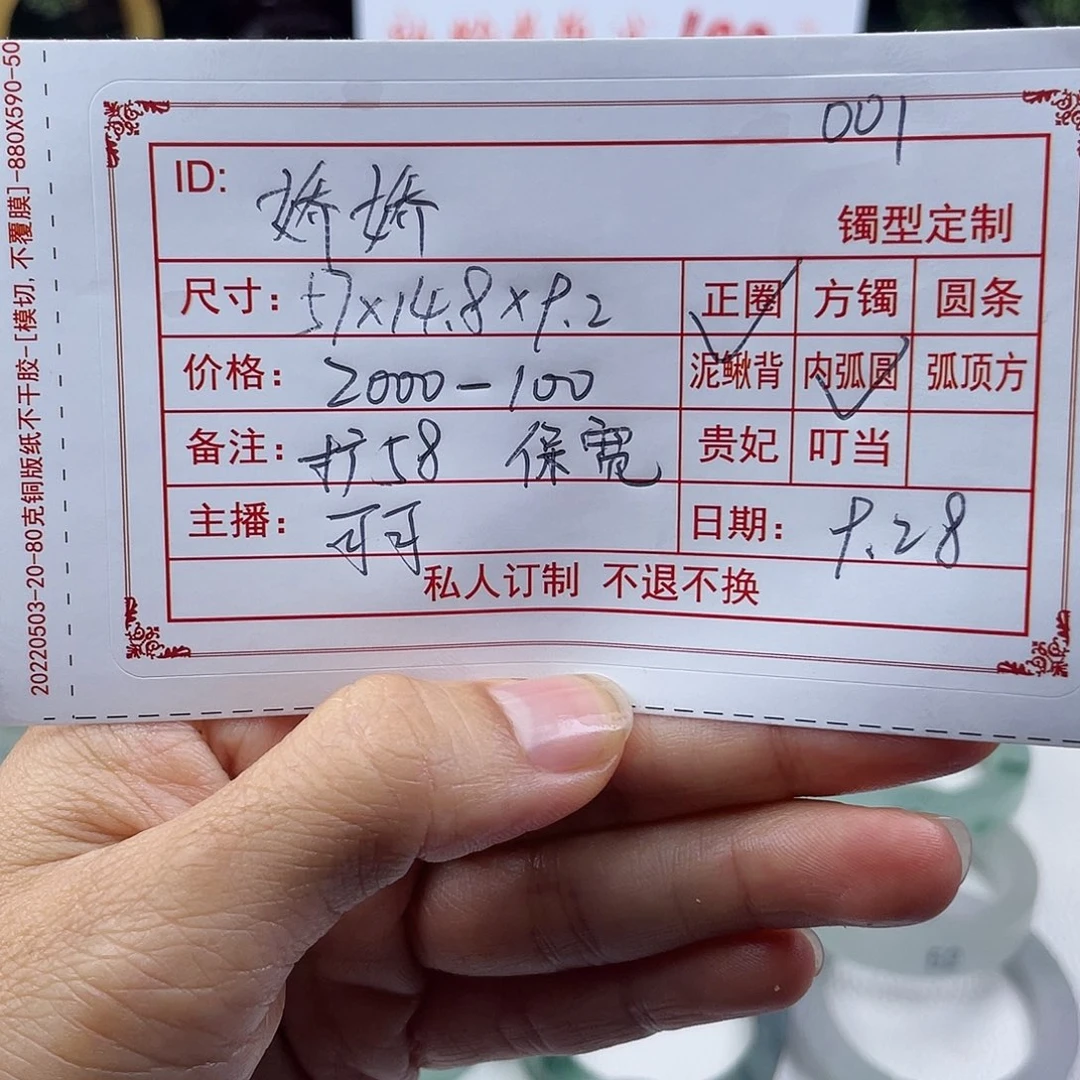 001
ID: 娇娇
镯型定制
尺寸: 57×14.8×9.2 正圈 方镯 圆条
价格: 2000-100 泥鳅背 内弧圆 弧顶方
备注: 扩58 保宽 贵妃 叮当
主播: 可可 日期: 9.28
私人订制 不退不换
20220503-20-80克铜版纸不干胶-[模切,不覆膜]-880X590-50